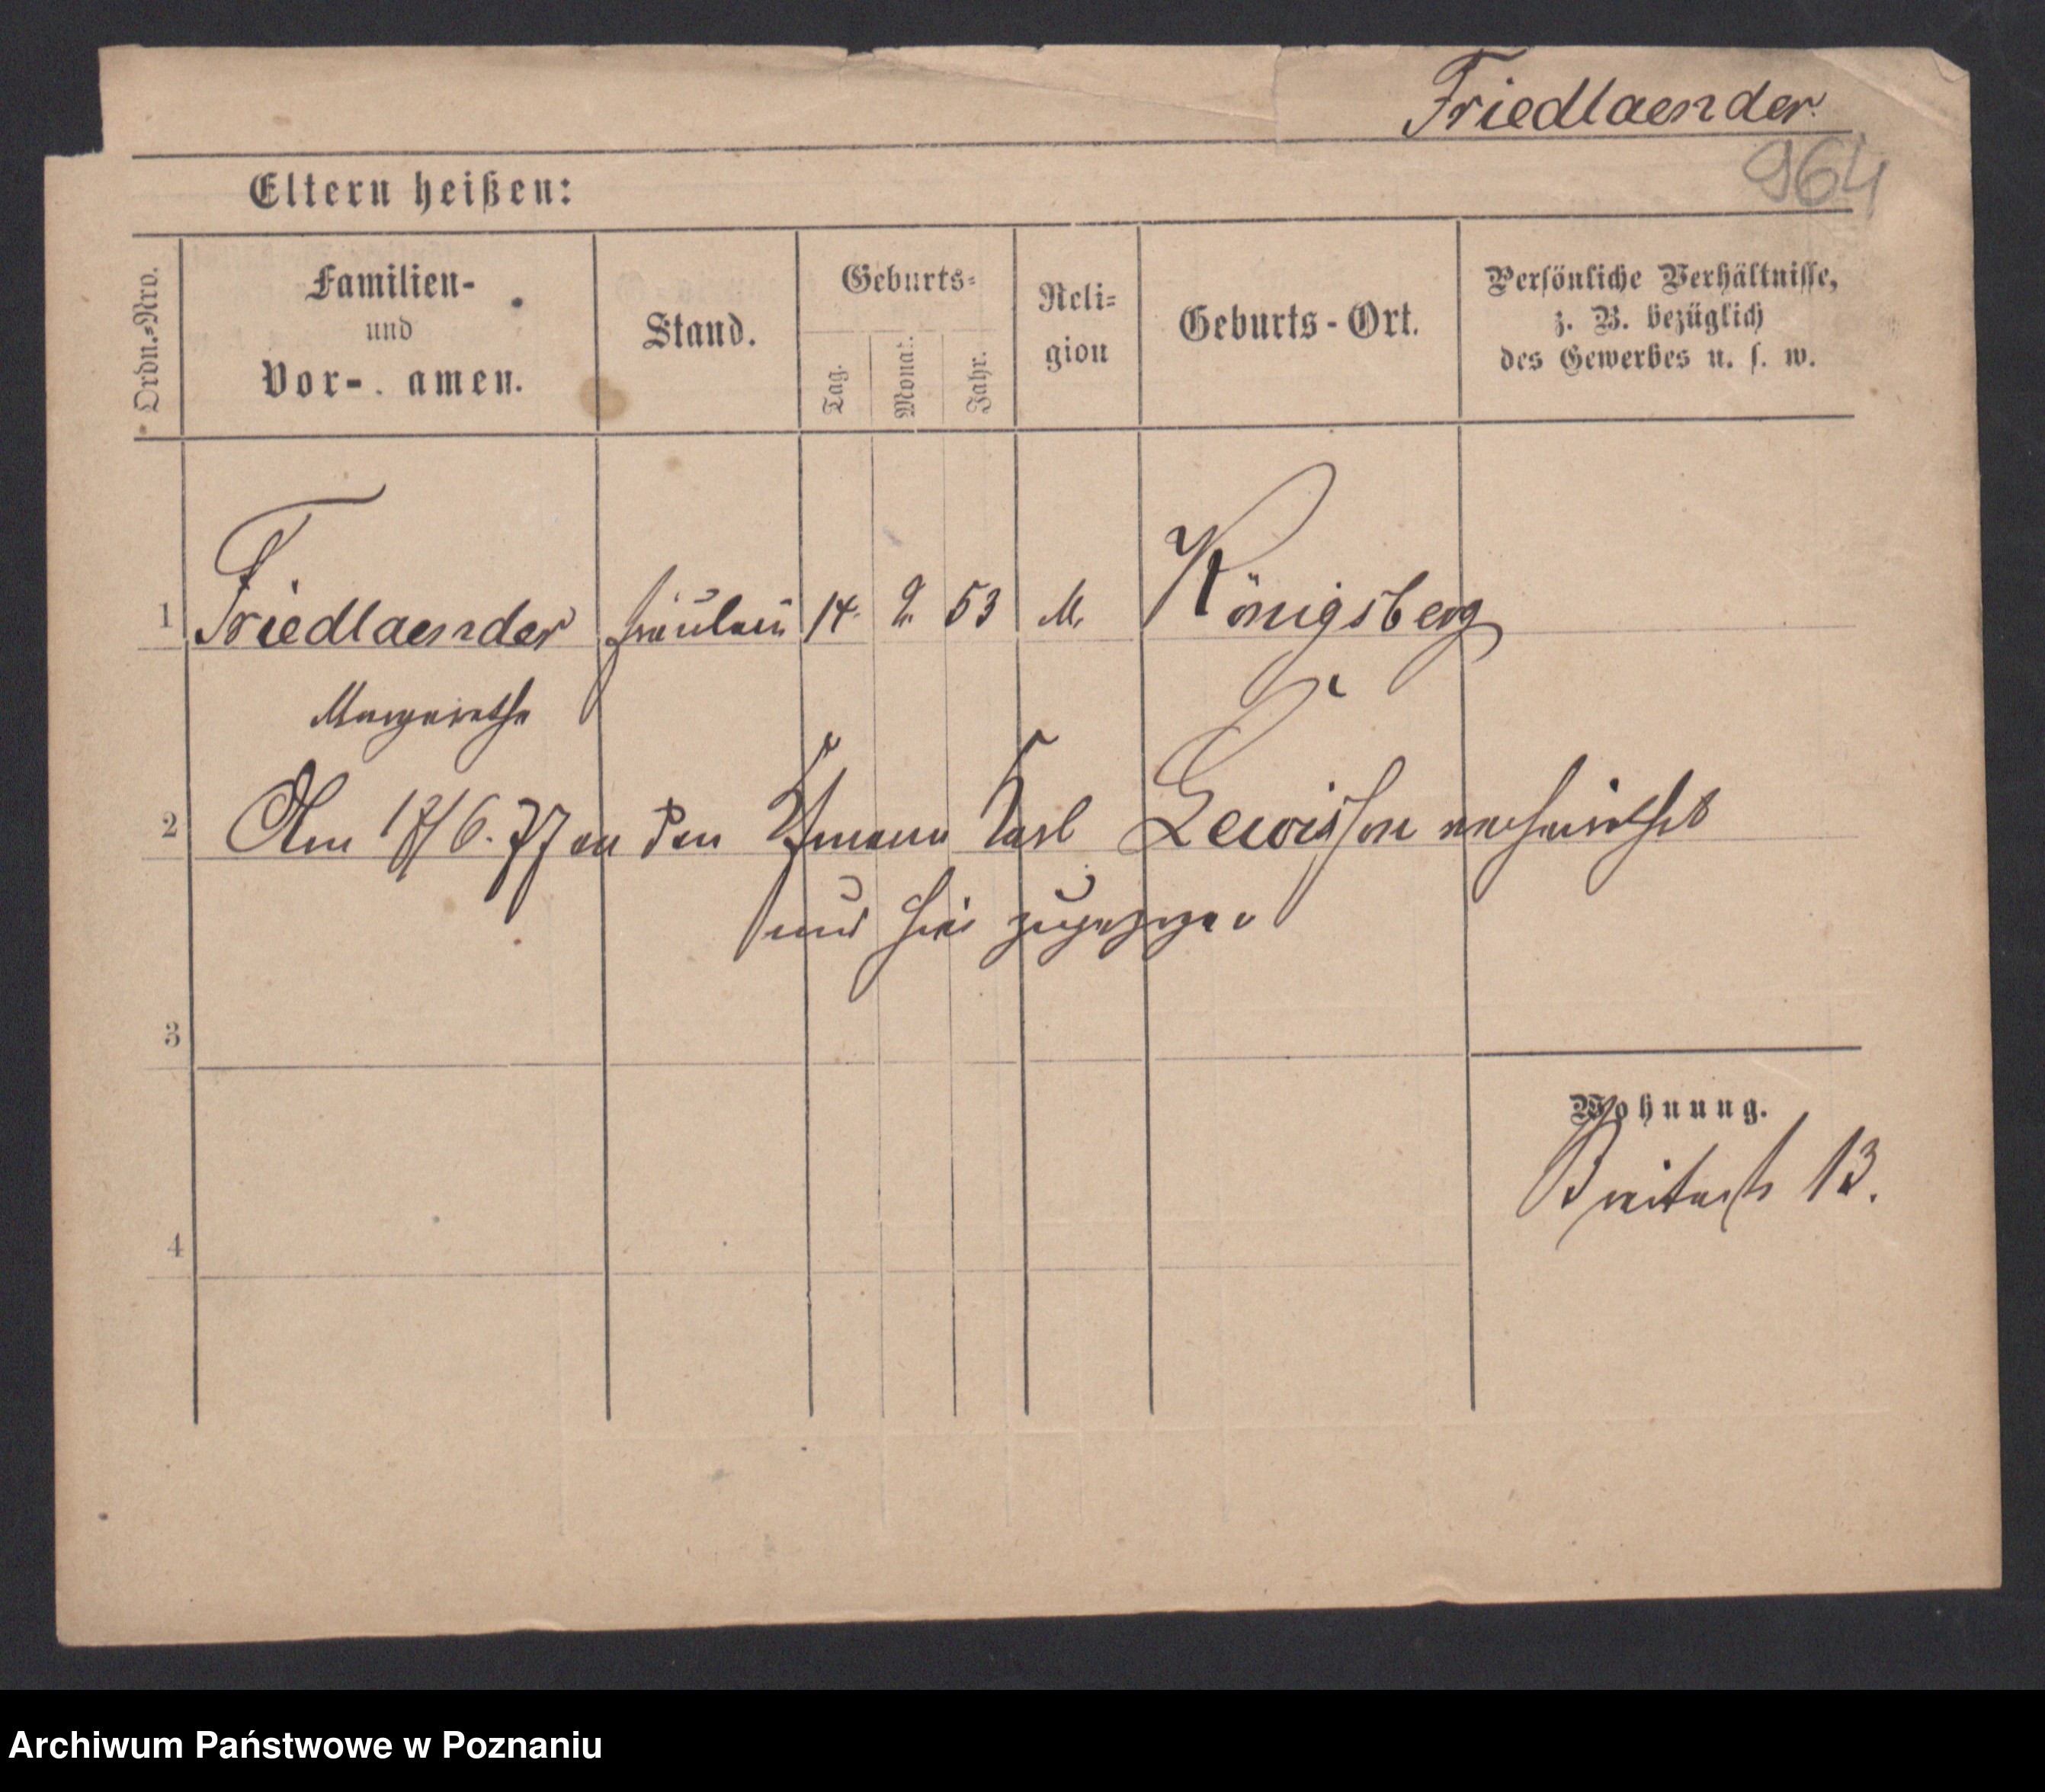 Friedlaender.
964
Eltern heißen:
Ordn.=Nro.
Familien-
und
Vor-. amen.
Stand.
Geburts=
Tag.
Monat.
Jahr.
Reli=
gion
Geburts-Ort.
Persönliche Verhältnisse,
z. B. bezüglich
des Gewerbes u. s. w.
1 Friedlaender Fräulein 14. 2. 53 M. Königsberg
Margarethe
2 Am 17/6. 77 an den Kfmann Karl Lewisson verheirathet
und hier zugezogen
3
Wohnung.
Breitestr 13.
4
Archiwum Państwowe w Poznaniu